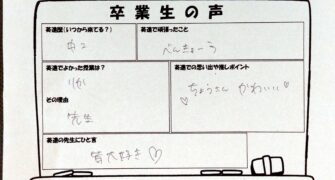 卒業生の声
英進歴(いつから来てる?)
中2
英進で頑張ったこと
べんきょーう
英進でよかった授業は?
りか
その理由
先生
英進での思い出や推しポイント
ちょうさん かわいい♡
英進の先生にひと言
皆大好き♡